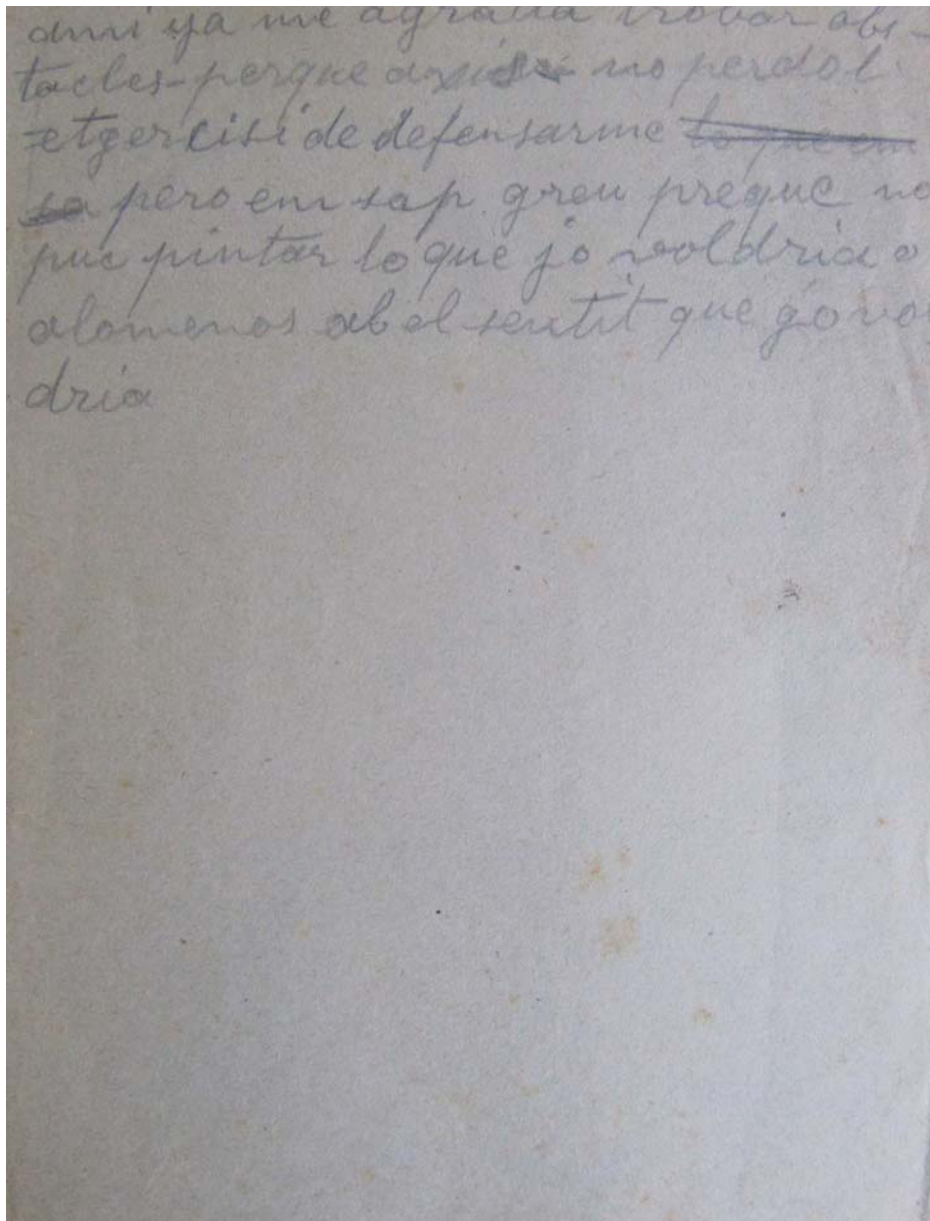 ami ya me agrada trobar obs-
tacles-perque axis no perdo l
etgercisi de defensarme lo que em
sa pero em sap greu preque no
puc pintar lo que jo voldria o
alomenos ab el sentit que go vol
dria